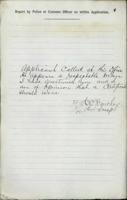 Report by Police or Customs Officer on within Application.
Applicant Called at the Office
He appears a respectable
I have questioned him and I
am of Opinion that a Certificate
should issue